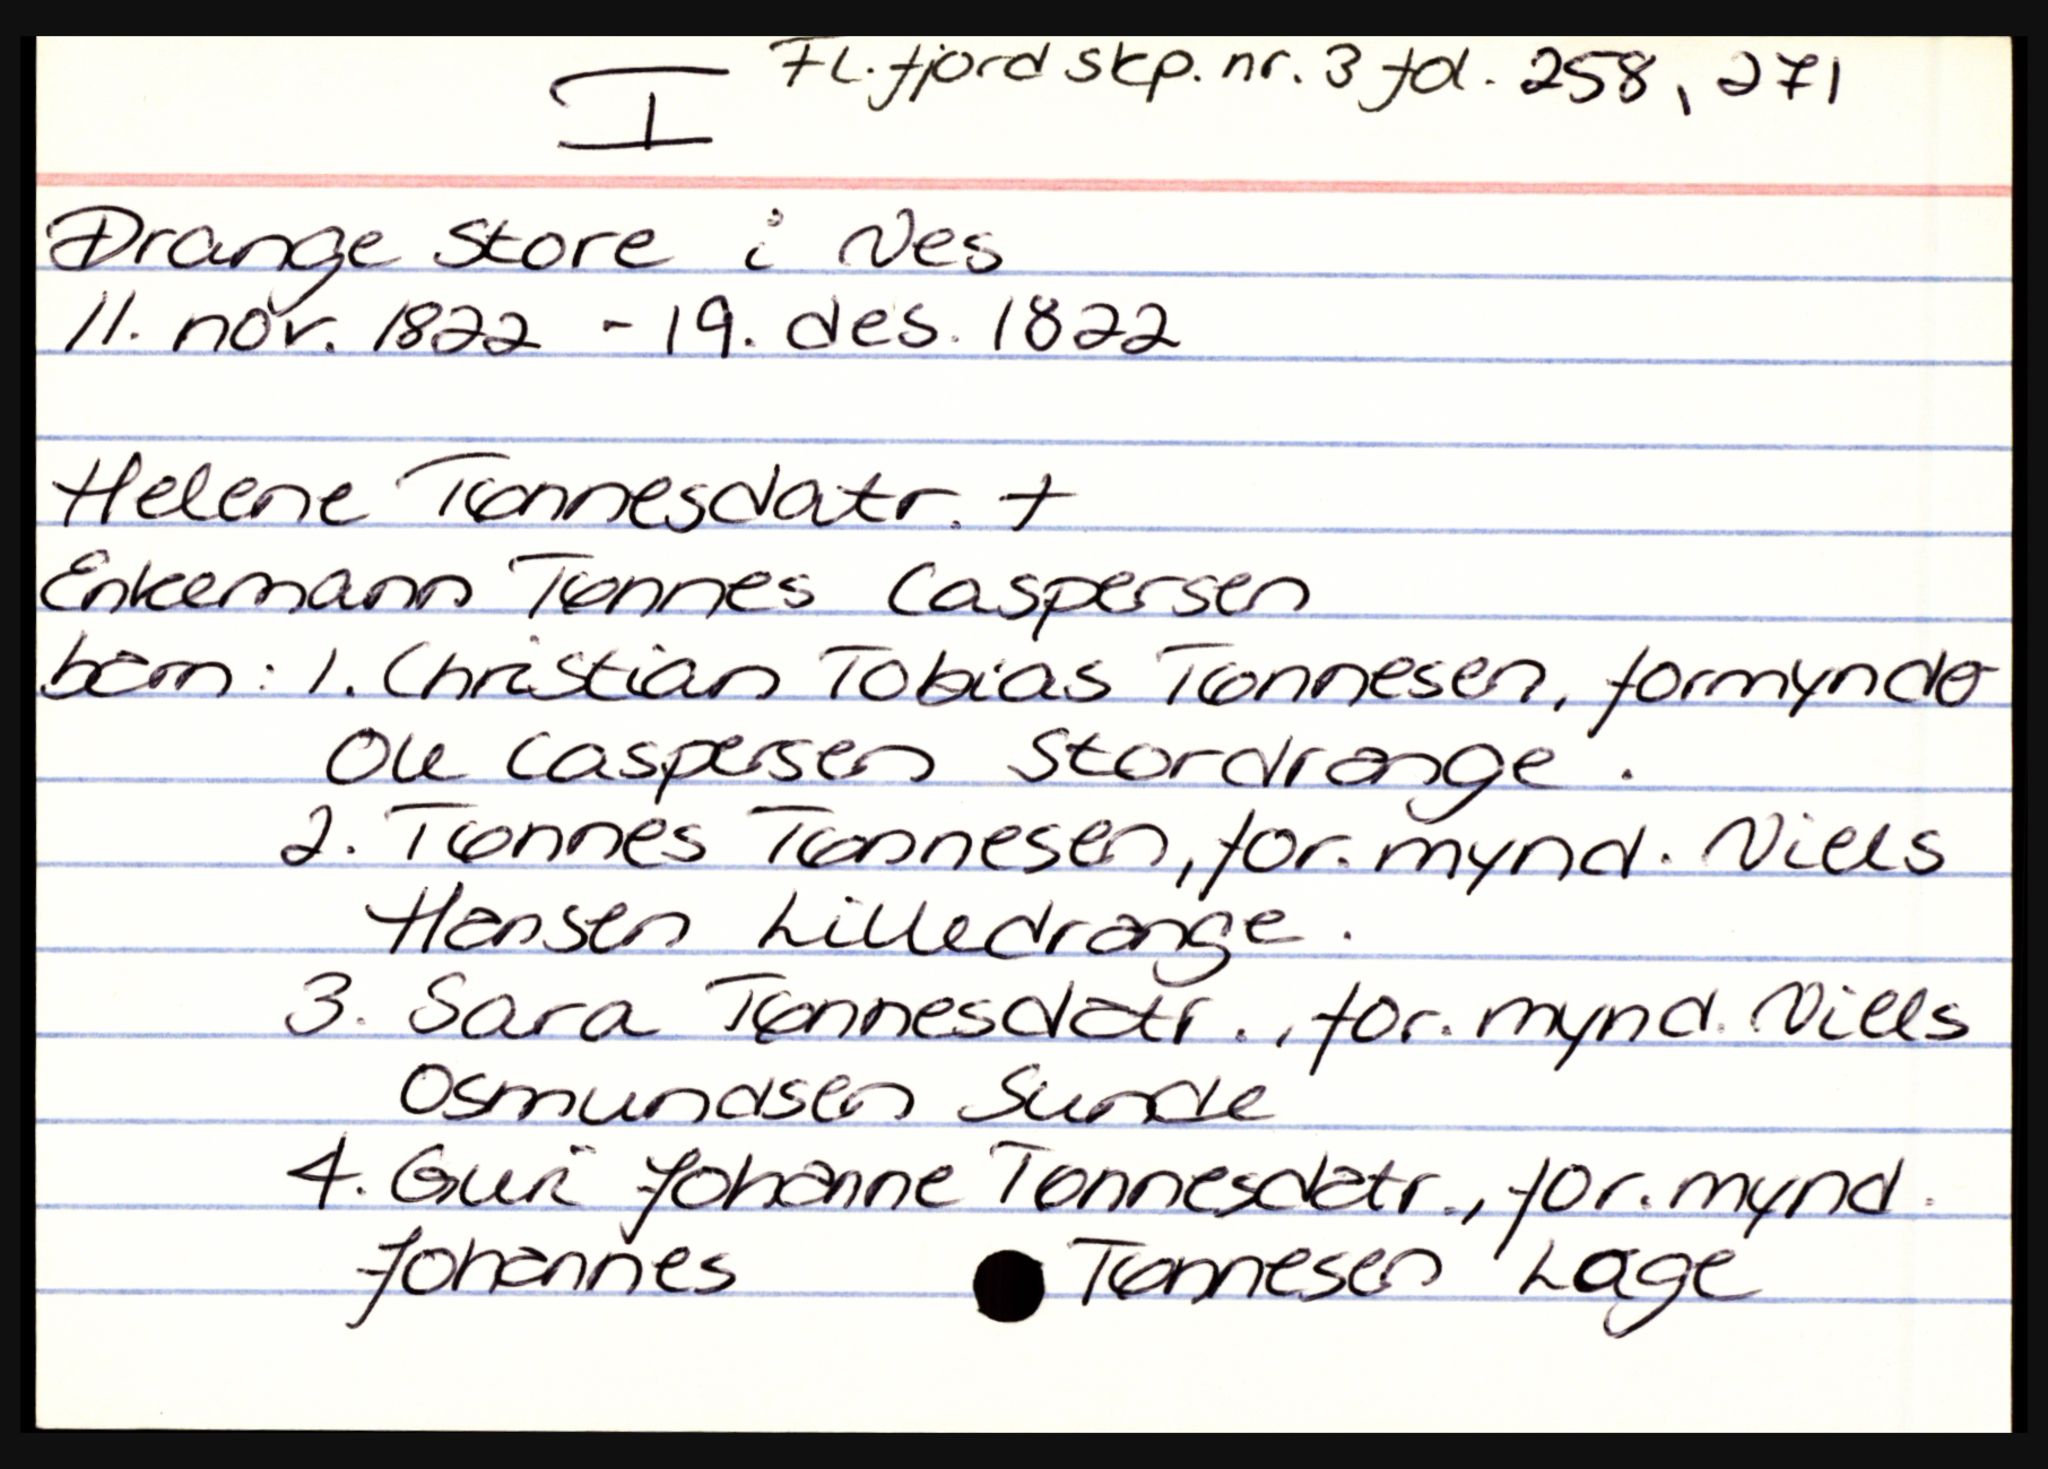 Fl.fjord skp. nr. 3 fol. 258, 271
I
Drange Store i Nes
11. nov. 1822 - 19. des. 1822
Helene Tønnesdatr. +
Enkemann Tønnes Caspersen
barn: 1. Christian Tobias Tønnesen, formynder
Ole Caspersen Stordrange.
2. Tønnes Tønnesen, for.mynd. Niels
Hansen Lilledrange.
3. Sara Tønnesdatr., for.mynd. Niels
Osmundsen Sunde
4. Guri Johanne Tønnesdatr., for.mynd.
Johannes Tønnesen Lage